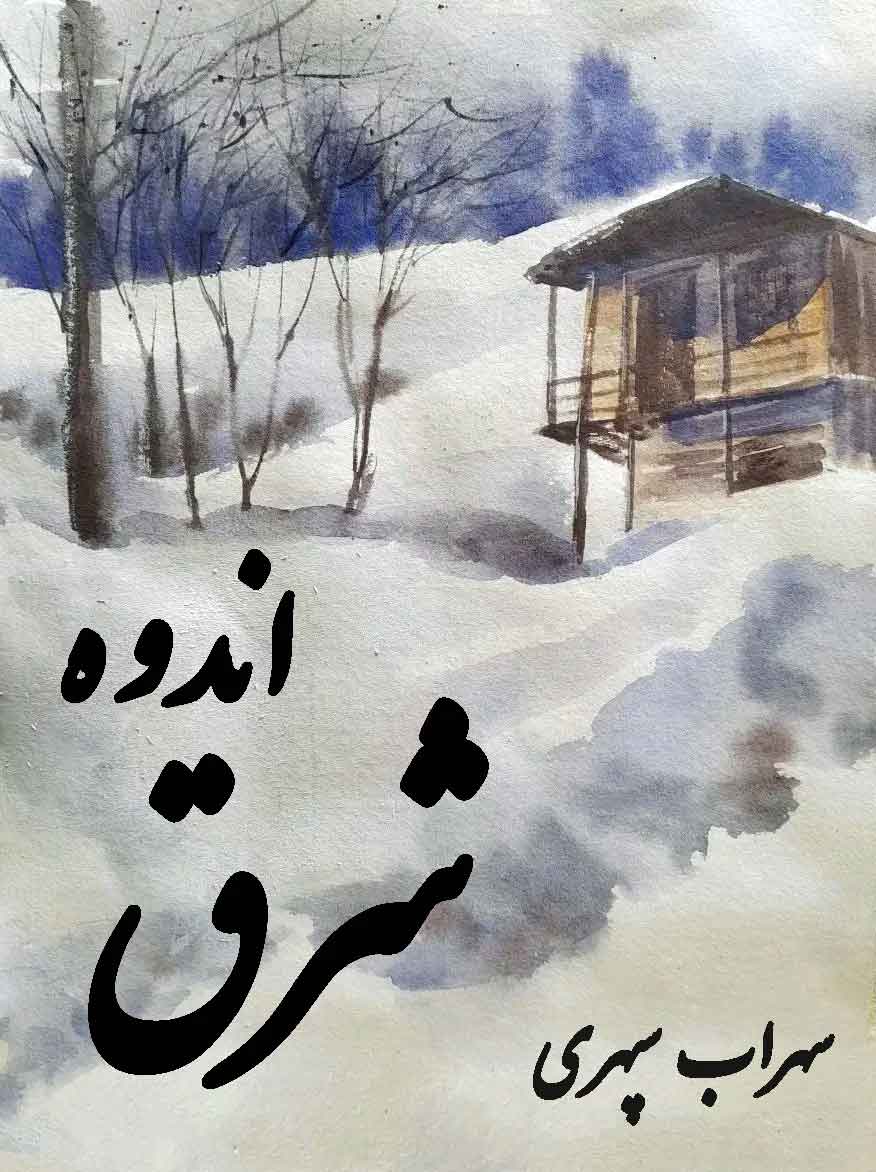 اندوه
شرق
سهراب سپهری